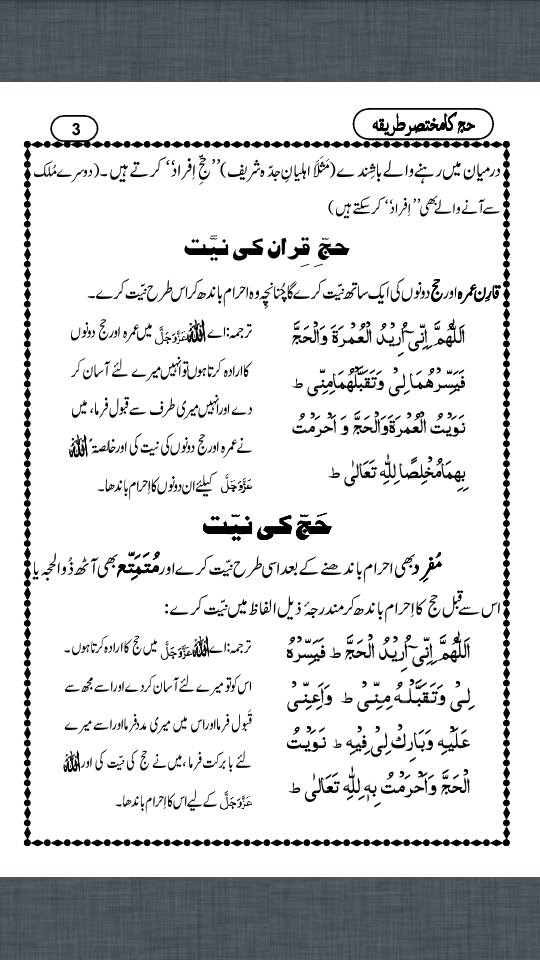 3
حج کا مختصر طریقہ
درمیان میں رہنے والے باشندے (مَثَلاً اہلیانِ جدّہ شریف) ’’حجِّ اِفراد‘‘ کرتے ہیں۔ (دوسرے مُلک
سے آنے والے بھی ’’اِفراد‘‘ کرسکتے ہیں)
حجِّ قِران کی نیَّت
قارِن عمرہ اور حج دونوں کی ایک ساتھ نیّت کرے گا چُنانچِہ وہ احرام باندھ کر اس طرح نیّت کرے۔
اَللّٰھُمَّ اِنِّیْۤ اُرِیْدُ الْعُمْرَۃَ وَالْحَجَّ
فَیَسِّرْھُمَا لِیْ وَتَقَبَّلْھُمَا مِنِّیْ ط
نَوَیْتُ الْعُمْرَۃَ وَالْحَجَّ وَ اَحْرَمْتُ
بِھِمَا مُخْلِصًا لِلّٰہِ تَعَالٰی ط
ترجمہ: اے اللّٰہ عَزَّوَجَلَّ میں عمرہ اور حج دونوں
کا ارادہ کرتا ہوں تو انہیں میرے لئے آسان کر
دے اور انہیں میری طرف سے قبول فرما، میں
نے عمرہ اور حج دونوں کی نیت کی اور خلصۃً اللّٰہ
عَزَّوَجَلَّ کیلئے ان دونوں کا اِحرام باندھا۔
حَجّ کی نیّت
مُفرِد بھی احرام باندھنے کے بعد اسی طرح نیّت کرے اور مُتَمَتِّع بھی آٹھ ذُوالحجہ یا
اس سے قبل حج کا اِحرام باندھ کر مندرجۂ ذیل الفاظ میں نیّت کرے:
اَللّٰھُمَّ اِنِّیْۤ اُرِیْدُ الْحَجَّ ط فَیَسِّرْہُ
لِیْ وَتَقَبَّلْہُ مِنِّیْ ط وَاَعِنِّیْ
عَلَیْہِ وَبَارِكْ لِیْ فِیْہِ ط نَوَیْتُ
الْحَجَّ وَاَحْرَمْتُ بِہٖ لِلّٰہِ تَعَالٰی ط
ترجمہ: اے اللّٰہ عَزَّوَجَلَّ میں حج کا ارادہ کرتا ہوں۔
اس کو تو میرے لئے آسان کر دے اور اسے مجھ سے
قبول فرما اور اس میں میری مدد فرما اور اسے میرے
لئے با برکت فرما، میں نے حج کی نیت کی اور اللّٰہ
عَزَّوَجَلَّ کے لیے اس کا اِحرام باندھا۔